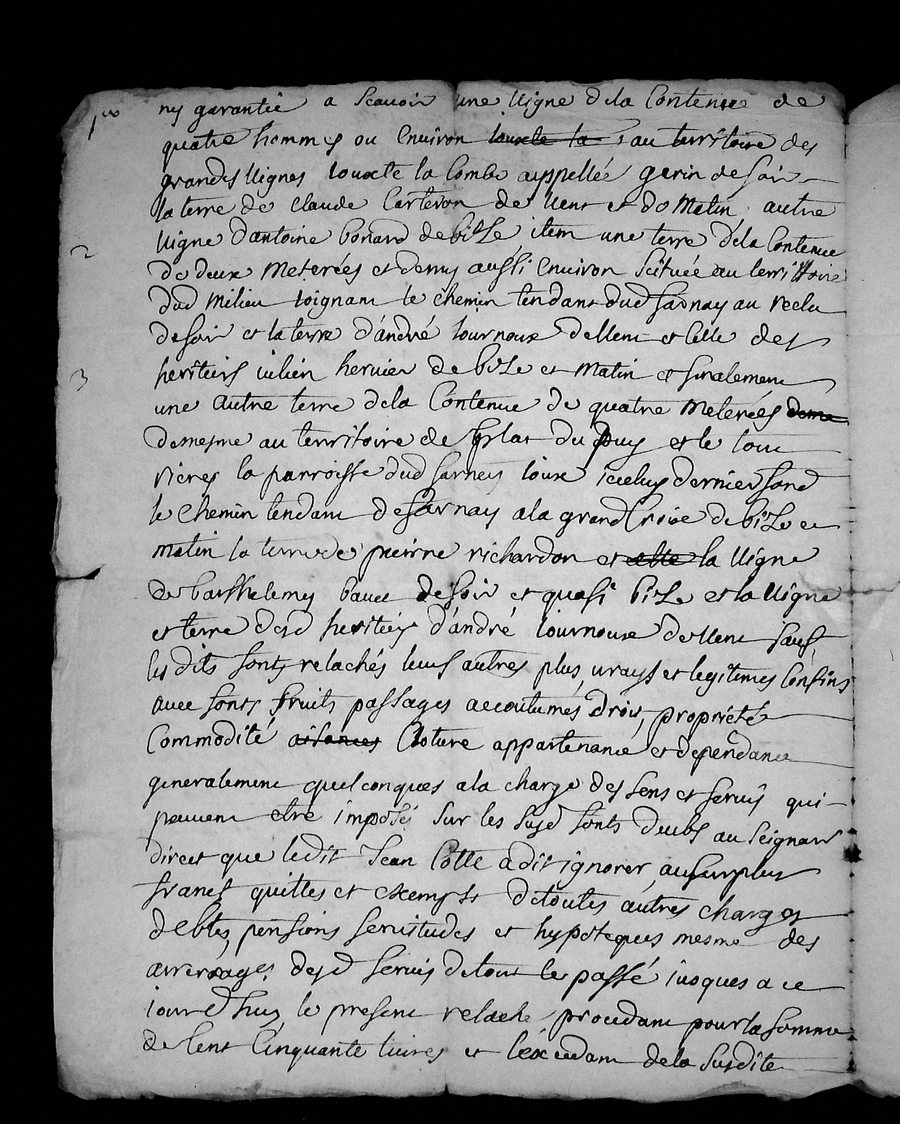 1er ny garantie a scauoir une uigne dela Contenue de
quatre hommes ou Enuiron ; au territoire des
grandes uignes iouxte la Combe appellée gerin de soir
la terre de claude Carteron de uent et do Matin autre
2 uigne d'antoine bonard de bize item une terre dela Contenue
de deux meterées et demy aussi Enuiron scituée au territoire
dud milieu ioignam le chemin tendant dud sarnay au
de soir et la terre d'andré tournoux de uent et Celle des
3 heritiers iulien heruier de bize et matin et finalement
une autre terre dela Contenue de quatre meterées
demesme au territoire de du puy et le tout
rieres la parroisse dud sarney ioux iceluy dernier fond
le chemin tendam de sarnay ala grand riue de bize et
matin la terre de pierre richardon et la uigne
de barthelemy de soir et quasi bize et la uigne
et terre desd heritiers d'andré tournoux de uent sauf
les dits fonts relachés leurs autres plus urays et legitimes Confins
auec fonts fruits passages accoutumés droit, proprieté
Commodité aisances Cloture appartenance et dependance
generalement quelconques ala charge des sens et seruis qui
peuuent etre imposés sur les susd fonts dubs au seigneur
direct que ledit Jean Cotte a dit ignorer au surplus
francs quittes et exempts de toutes autres charges
debtes, pensions seruitudes et hypoteques mesme des
arrerages desd seruis de tout le passé iusques a ce
iourdhuy le present relache procedam pour la somme
de Cent Cinquante liures et l'excedam dela susdite